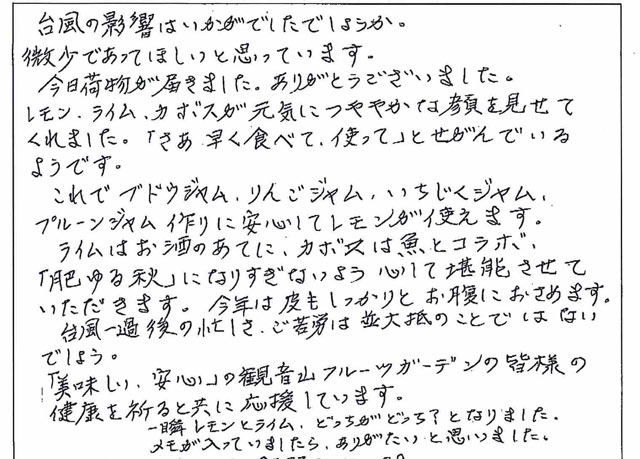 台風の影響はいかがでしたでしょうか。
微少であってほしいと思っています。
今日荷物が届きました。ありがとうございました。
レモン、ライム、カボスが元気につややかな顔を見せて
くれました。「さあ 早く食べて、使って」とせがんでいる
ようです。
これで ブドウジャム、りんごジャム、いちじくジャム、
プルーンジャム 作りに安心してレモンが使えます。
ライムはお酒のあてに、カボスは魚とコラボ、
「肥ゆる秋」になりすぎないよう 心して 堪能させて
いただきます。今年は皮もしっかりと お腹におさめます。
台風一過後の忙しさ、ご苦労は並大抵のことではない
でしょう。
「美味しい、安心」の観音山フルーツガーデンの皆様の
健康を祈ると共に応援しています。
一瞬 レモンとライム、どっちがどっち？となりました、
メモが入っていましたら、ありがたいと思いました。